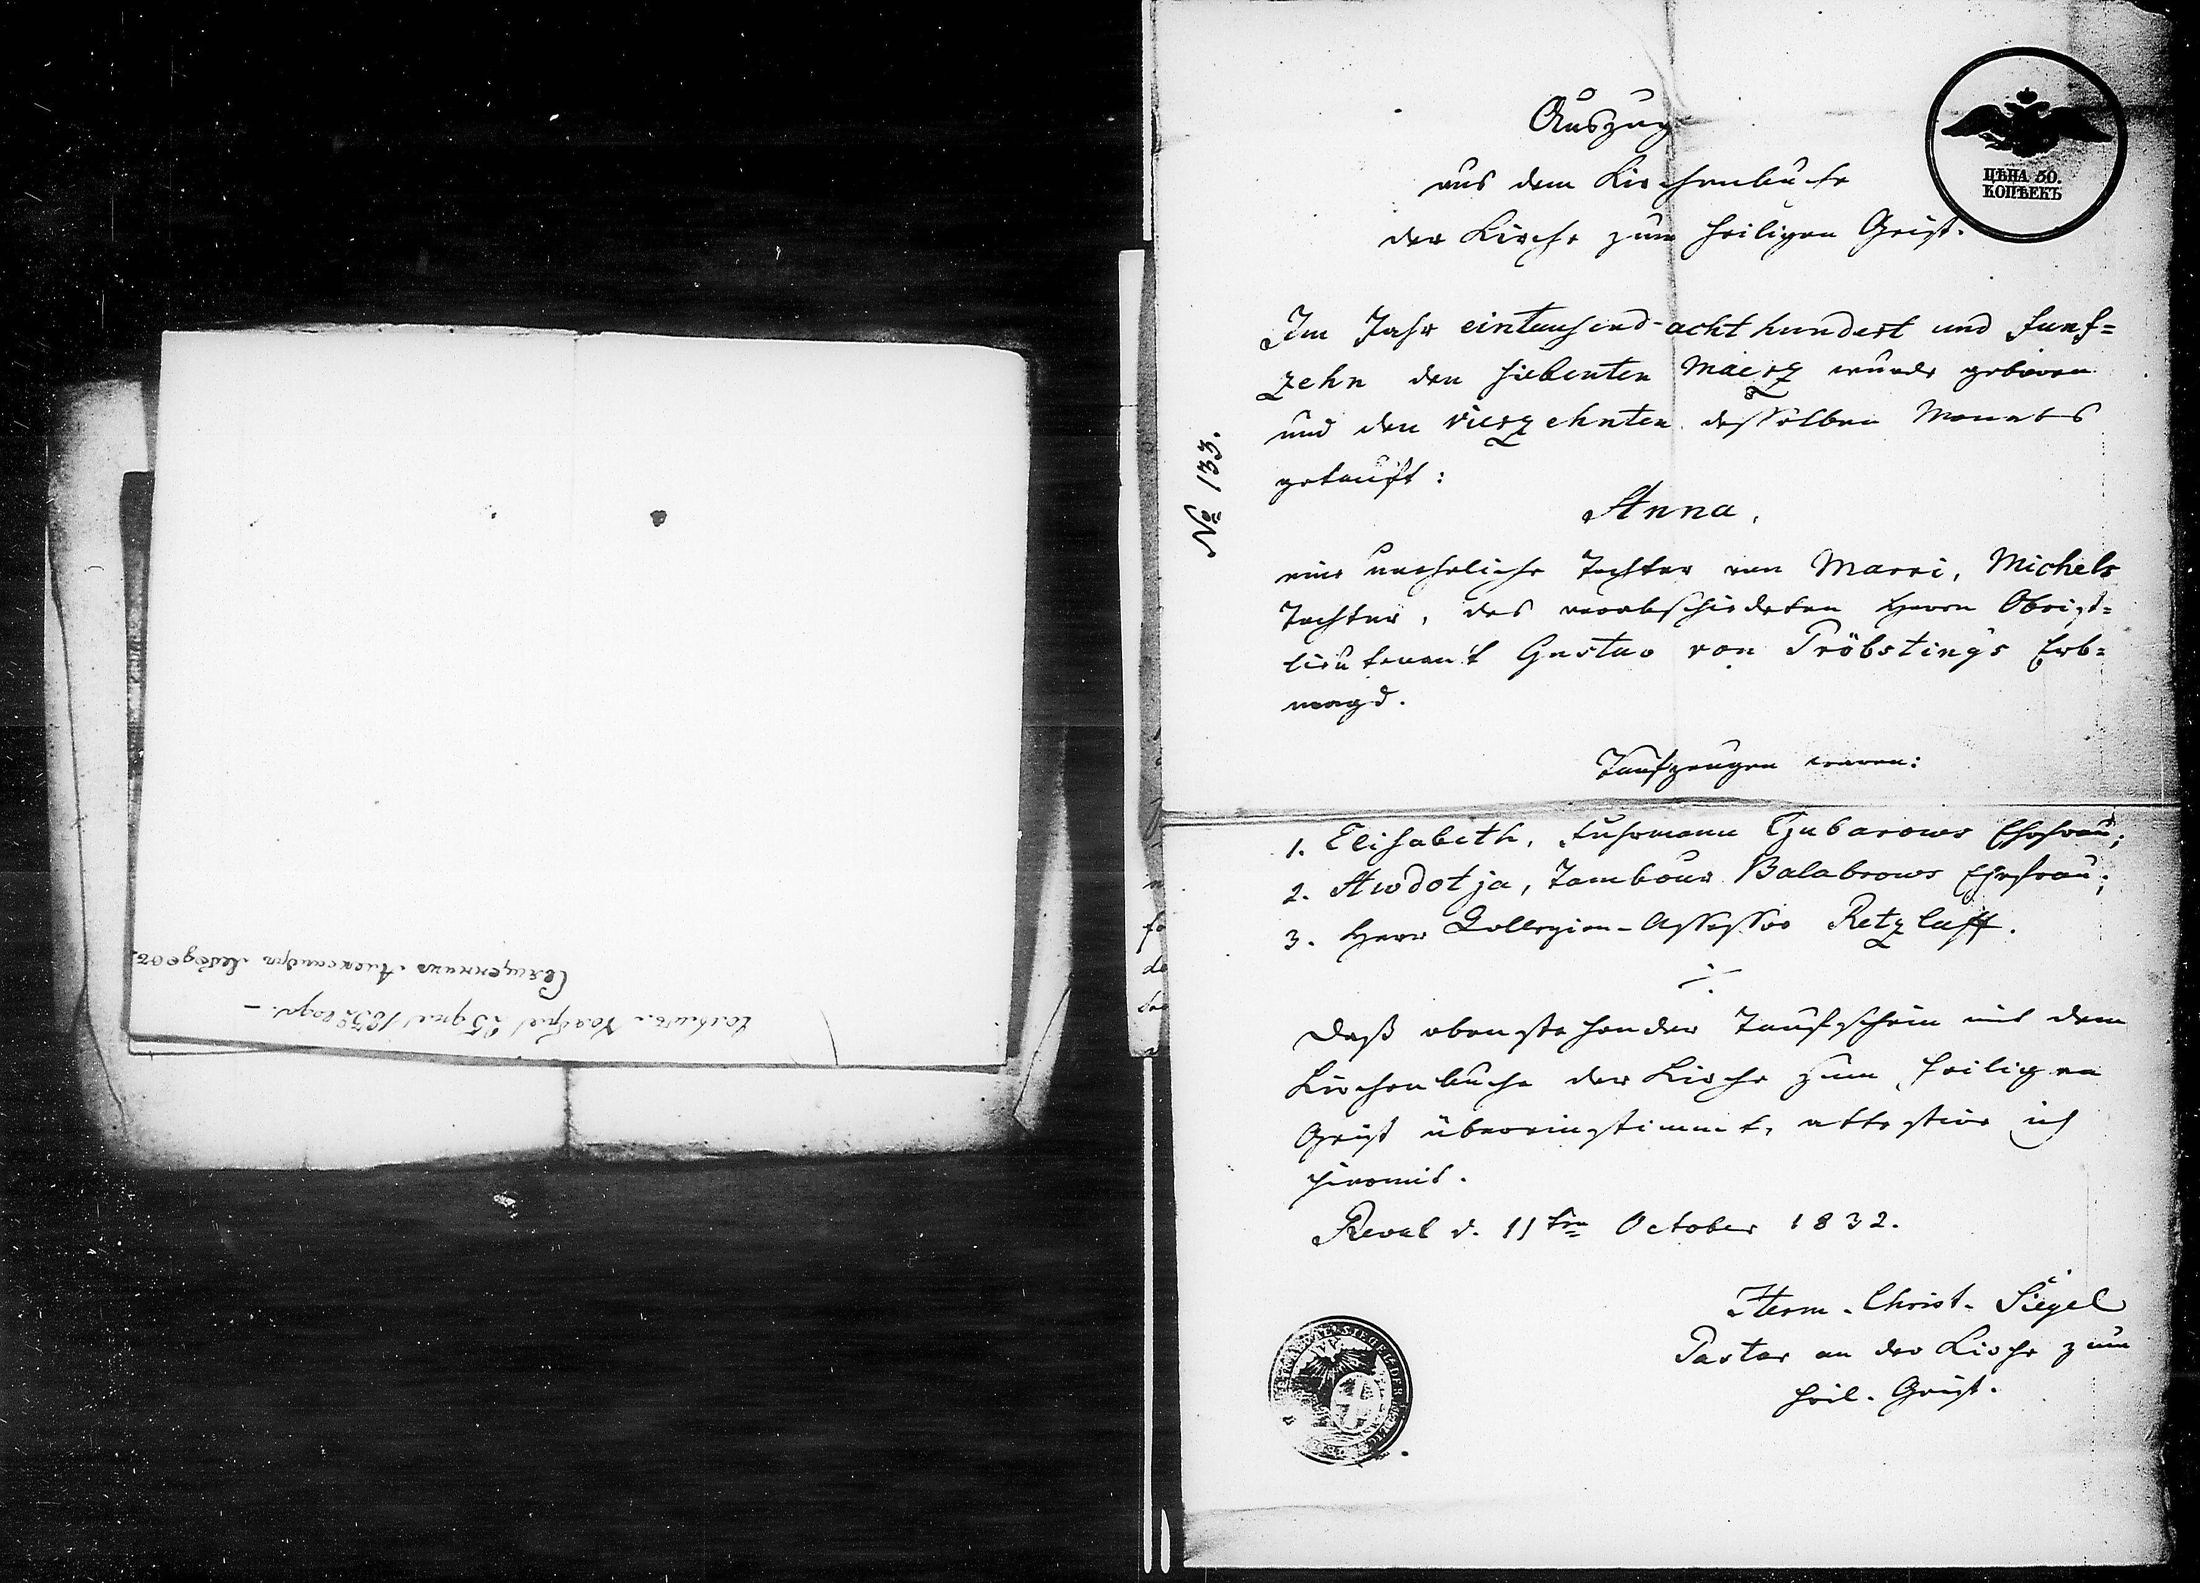 Auszug
aus dem Kirchenbuche
der Kirche zum heiligen Geist.
ЦѢНА 50.
КОПѢЕКЪ
Im Jahr eintausend acht hundert und funf=
zehn den siebenten Maerz wurde geboren
und den vierzehnten desselben Monats
getauft:
№ 133.
Anna,
eine uneheliche Tochter von Marri, Michels
Tochter, des verabschiedeten Herrn Obrist=
lieutenant Gustav von Pröbsting's Erb=
magd.
Taufzeugen waren:
1. Elisabeth, Fuhrmann Gubarows Ehefrau;
2. Awdotja, Tambour Balabrows Ehefrau;
3. Herr Collegien-Assessor Retzlaff.
Daß obenstehender Taufschein mit dem
Kirchenbuche der Kirche zum heiligen
Geist übereinstimmt, attestire ich
hiermit.
Reval d. 11ten October 1832.
Herm. Christ. Siegel
Pastor an der Kirche zum
heil. Geist.
25 дня 1832 года. —
Священникъ Александръ